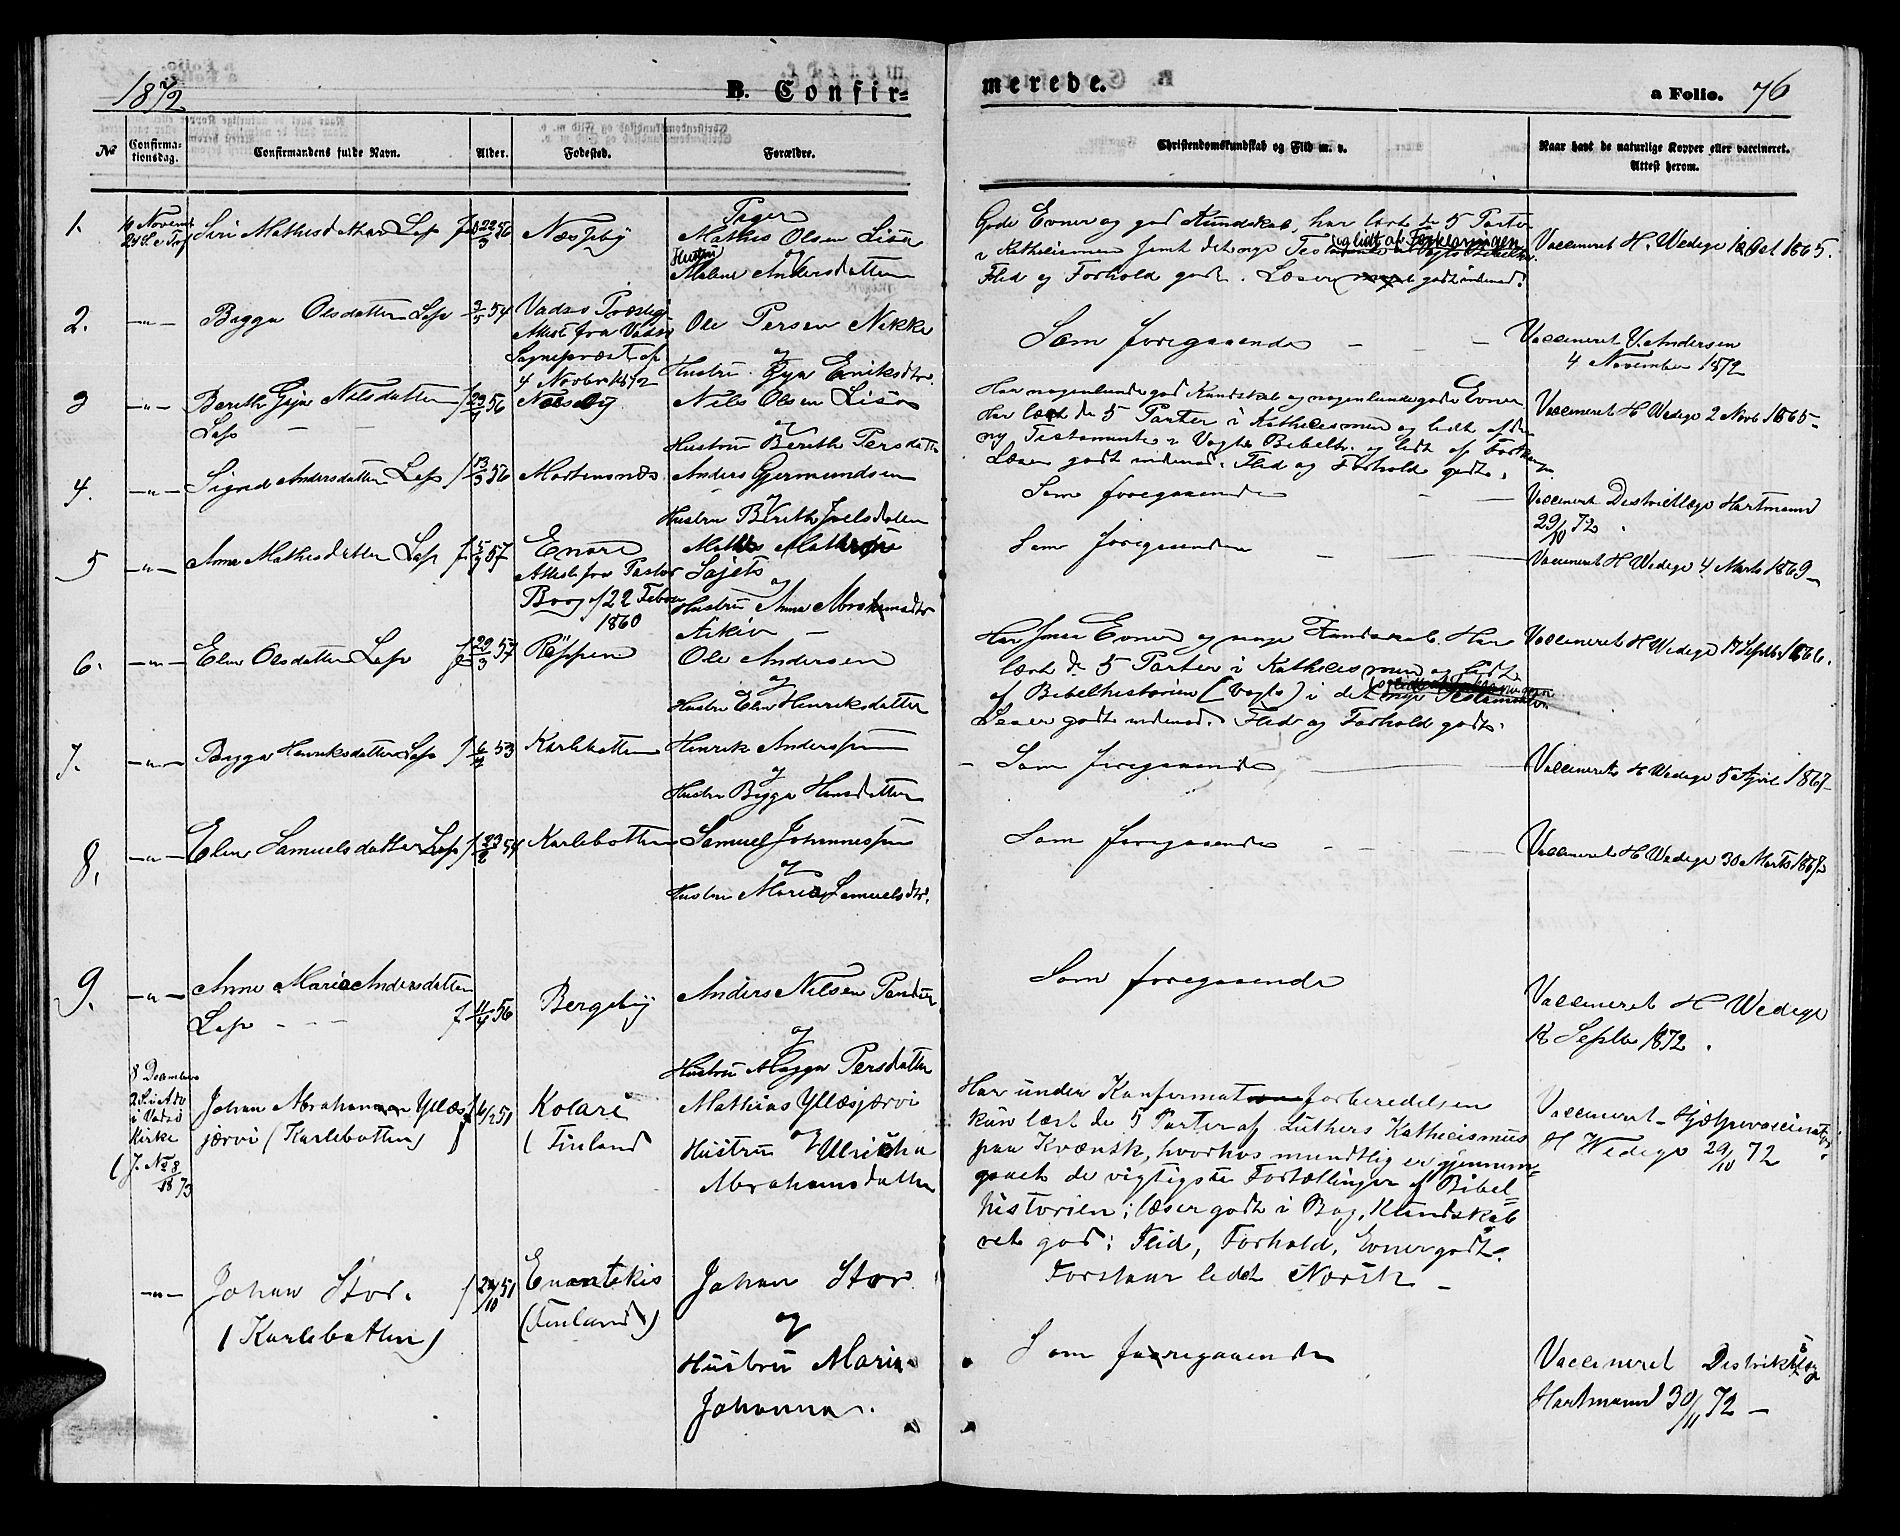 1872
B. Confir=
merede.
a Folio. 76
No
Confirma-
tionsdag.
Confirmandens fulde Navn.
Alder.
Fødested.
Forældre.
Christendomskundskab og Flid m. v.
Naar havt de naturlige Kopper eller vaccineret.
Attest herom.
1.
Novemb
24 S. e. Trf
Siri Mathisdatter Lap
f. 22/3 56
Næsseby
Mathis Olsen Lisa
og
Hustru
Malene Andersdatter
Gode Evner og god Kundskab, har lært de 5 Parter
i Kathecismen samt det nye Testamente og lidt af Forklaringen
Flid og Forhold godt. Læser godt indenad.
Vaccineret H. Wedege 12 Oct 1865.
2.
-"-
Bigga Olsdatter Lap
3/5 54
Vadsø Præstegj
Attest fra Vadsø
Sognepræst af
4 Novbr 1872
Ole Persen Nikke
og
Hustru Eriksdtr.
Som foregaaende
Vaccineret V. Andersen
4 November 1872
3
-"-
Bereth Nilsdatter
Lap
56
Næsseby
Nils Olsen Lisa
og
Hustru Bereth Persdatt
Har nogenlunde god Kundskab og nogenlunde gode Evner
Har lært de 5 Parter i Kathecismen og lidt af det
ny Testamente i Vogts Bibelh. og lidt af Forklar
Læser godt indenad. Flid og Forhold godt.
Vaccineret H Wedege 2 Novb 1865
4.
-"-
Signe Andersdatter Lap
f 13/3 56
Mortensnæs
Anders Gjermundsen
og
Hustru Bereth Joelsdatter
Som foregaaende
Vaccineret Destriktlæge Hartmann
29/10 72.
5
-"-
Anne Mathisdatter Lap
f. 5/9 57
Enare
Attest fra Pastor
Borg af 22 Febr
1860
Mathis Mathisen
Sajets
og
Hustru Anne Abrahamsdtr
Aikio
Som foregaaende
Vaccineret H Wedege 4 Marts 1869
6.
-"-
Elen Olsdatter Lap
f. 29/3 57
Reppen
Ole Andersen
og
Hustru Elen Henriksdatter
Har Evner og Kundskab. Har
lært de 5 Parter i Kathecismen og lidt
af Bibelhistorien (Vogts) i det nye Testamente
Læser godt indenad. Flid og Forhold godt.
Vaccineret H Wedege 17 Septbr 1866.
7.
-"-
Bigga Henriksdatter Lap
f 53
Karlebotten
Henrik Anderssen
og
Hustru Bigga Hansdatter
Som foregaaende
Vaccineret H Wedege 5 April 1867
8.
-"-
Elen Samuelsdatter Lap
f 23/2 54
Karlebotten
Samuel Johannessen
og
Hustru Maria Samuelsdtr.
Som foregaaende
Vaccineret H Wedege 30 Marts 1867
9.
-"-
Anne Maria Andersdatter
Lap
f. 11/4 56
Bergeby
Anders Nilsen
og
Hustru Magga Persdatter
Som foregaaende
Vaccineret H Wedege
18 Septbr 1872.
8 December
2 S. i Adv
i Vadsø
Kirke
(J. No 8
1873
Johan Abraham Ylläs
järvi (Karlebotten)
f 4/2 51
Kolari
(Finland
Mathias Ylläsjärvi
og
Hustru Ulricka
Abrahamsdatter
Har under Konfirmatforberedelsen
kun lært de 5 Parter af Luthers Kathecismus
paa Kvænsk, hvorhos mundtlig er gjennem=
gaaet de vigtigste Fortællinger af Bibel=
historien; læser godt i Bog, Kundskab
ret god: Flid, Forhold, Evner godt.
Forstaar lidt Norsk
Vaccineret Hjælpevaccinatør
H Wedege 29/10 72
-"-
Johan Stor.
(Karlebotten)
f 29/10 51
Enontekis
(Finland)
Johan Stor
og
Hustru Maria
Johanna.
Som foregaaende
Vaccineret Destriktslæge
Hartmann 30/11 72